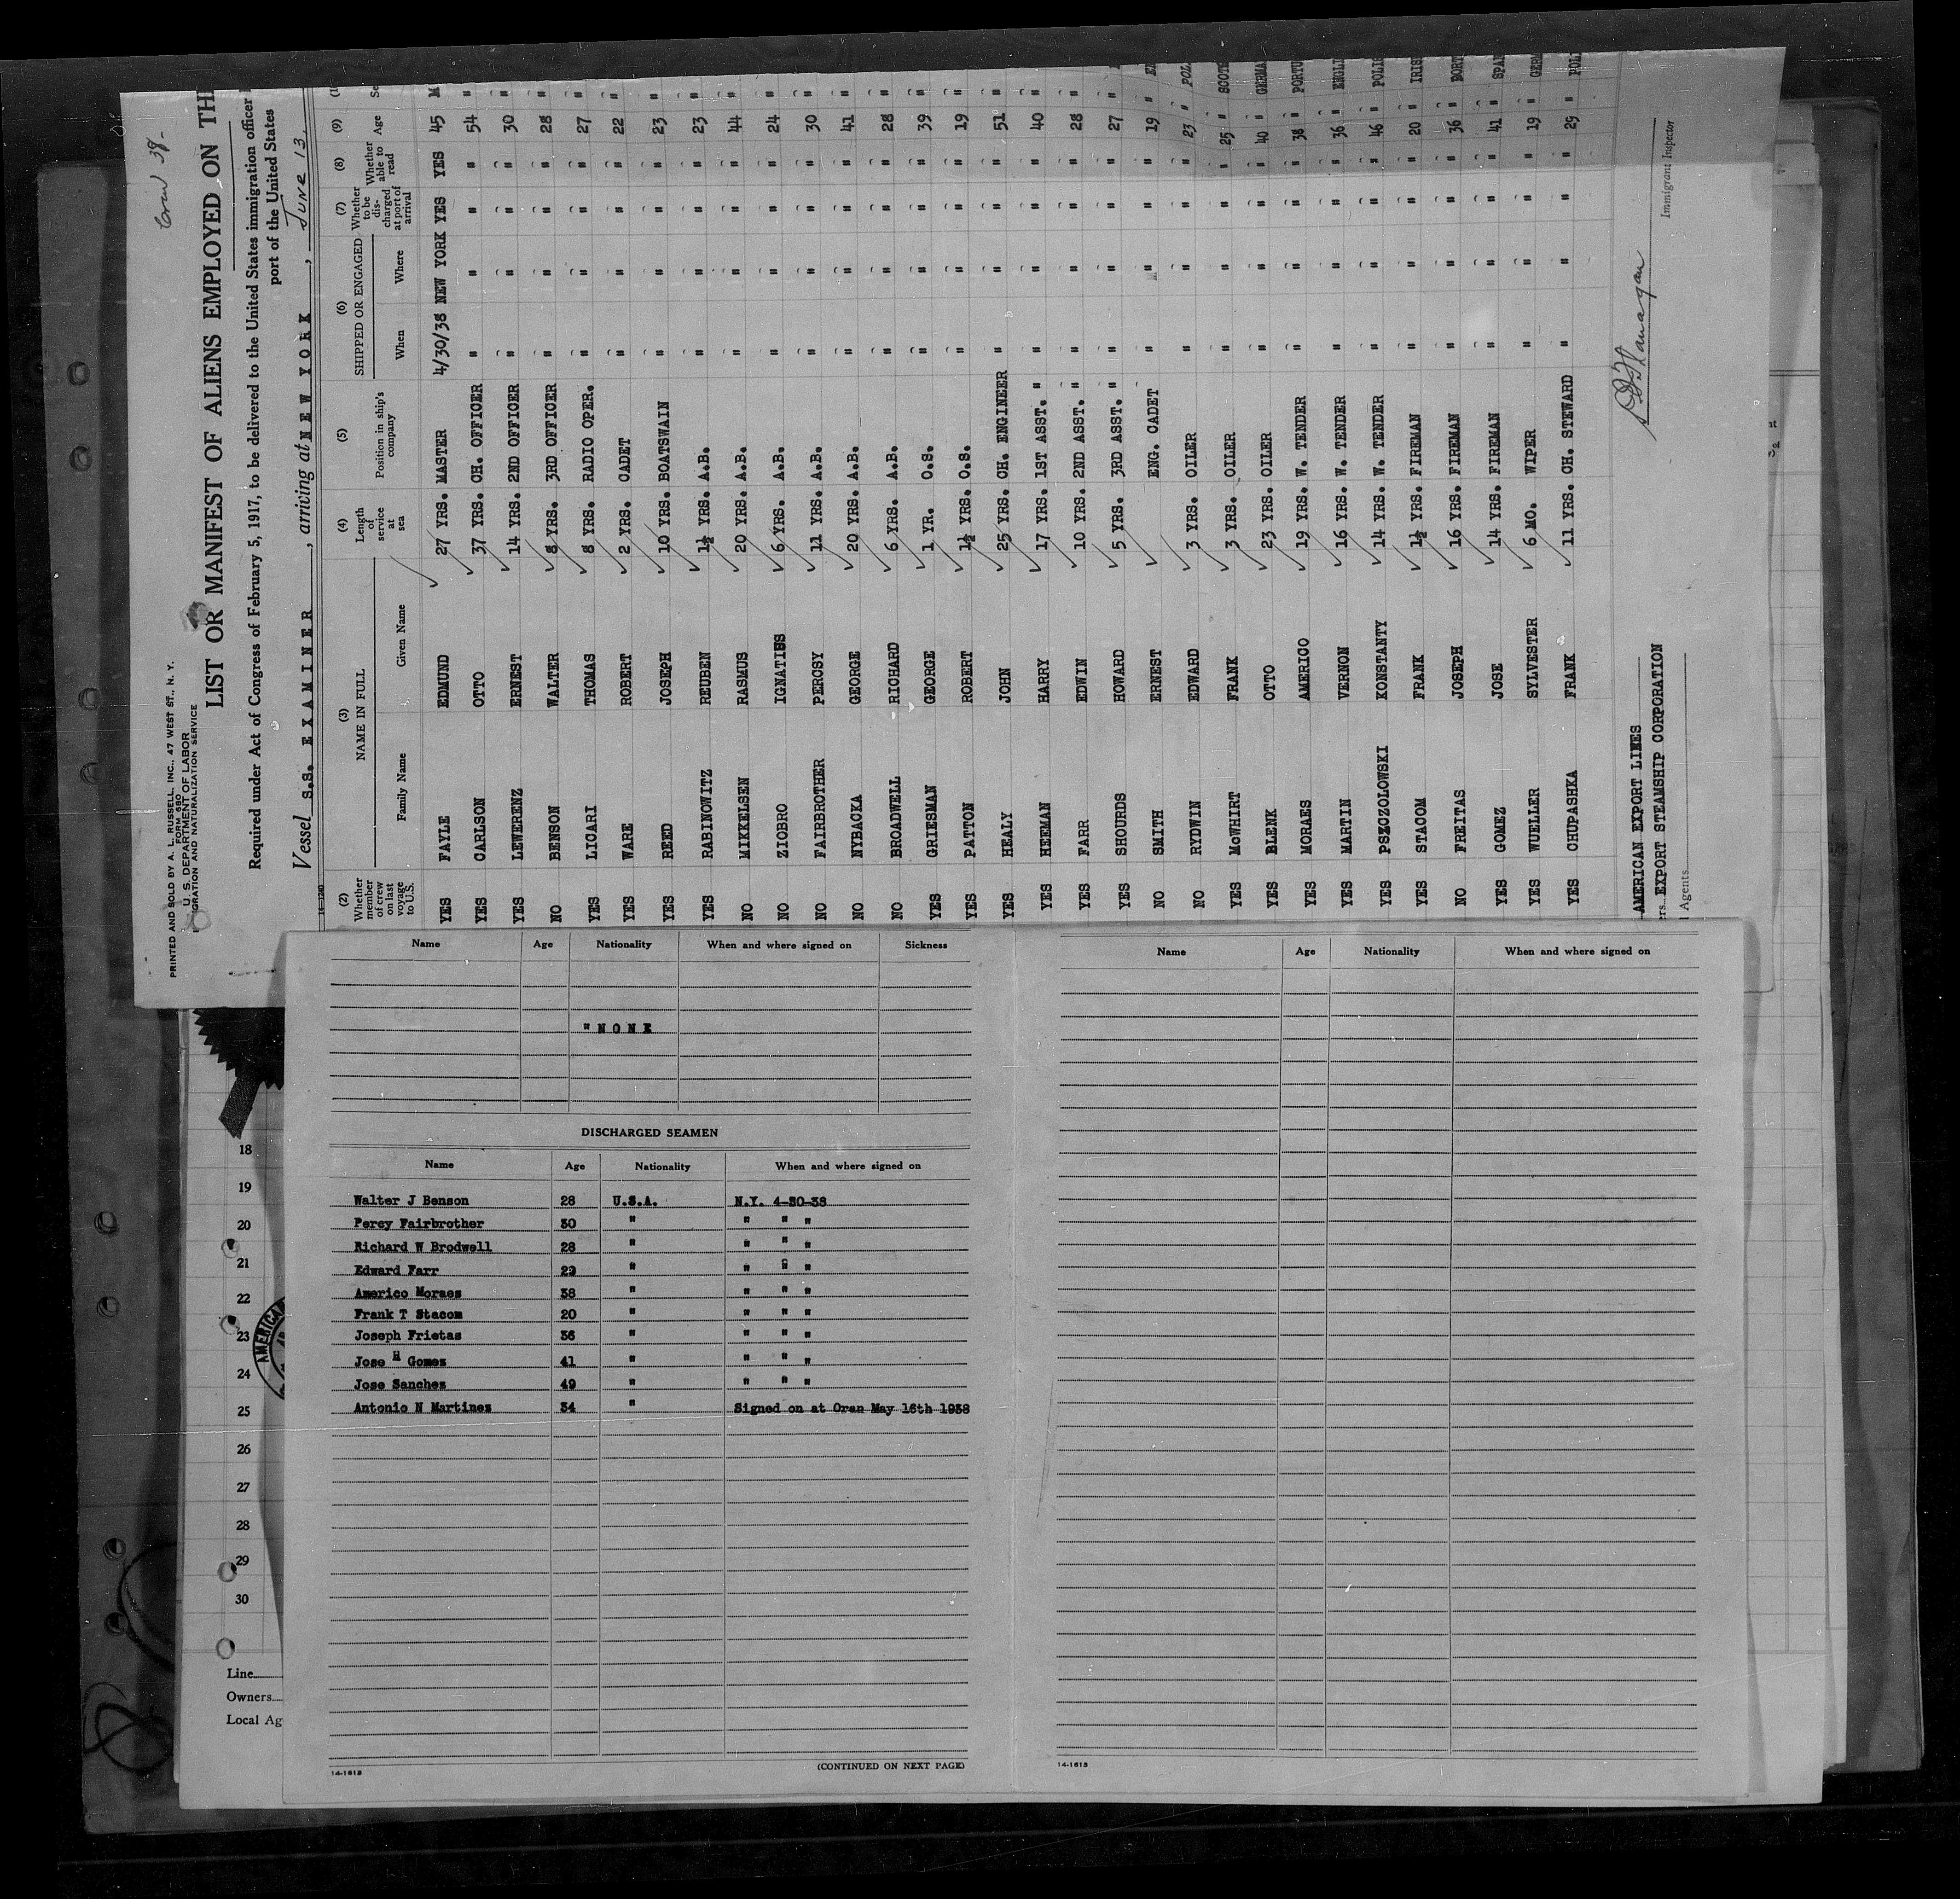 Crew 38-
PRINTED AND SOLD BY A. L. RUSSELL, INC., 47 WEST ST., N. Y.
FORM 680
U. S. DEPARTMENT OF LABOR
GRATION AND NATURALIZATION SERVICE
LIST OR MANIFEST OF ALIENS EMPLOYED ON TH
Required under Act of Congress of February 5, 1917, to be delivered to the United States immigration officer
port of the United States
Vessel S.S. EXAMINER, arriving at NEW YORK, JUNE 13,
(2) (3) (4) (5) (6) (7) (8) (9)
Whether member of crew on last voyage to U.S. NAME IN FULL Family Name Given Name Length of service at sea Position in ship's company SHIPPED OR ENGAGED When Where Whether to be discharged at port of arrival Whether able to read Age Se
YES FAYLE EDMUND 27 YRS. MASTER 4/30/38 NEW YORK YES YES 45 M
YES CARLSON OTTO 37 YRS. CH. OFFICER " " " " 54 "
YES LEWERENZ ERNEST 14 YRS. 2ND OFFICER " " " " 30 "
NO BENSON WALTER 8 YRS. 3RD OFFICER " " " " 28 "
YES LICARI THOMAS 8 YRS. RADIO OPER. " " " " 27 "
YES WARE ROBERT 2 YRS. CADET " " " " 22 "
YES REED JOSEPH 10 YRS. BOATSWAIN " " " " 23 "
YES RABINOWITZ REUBEN 1½ YRS. A.B. " " " " 23 "
NO MIKKELSEN RASMUS 20 YRS. A.B. " " " " 44 "
NO ZIOBRO IGNATISS 6 YRS. A.B. " " " " 24 "
NO FAIRBROTHER PERCSY 11 YRS. A.B. " " " " 30 "
NO NYBACKA GEORGE 20 YRS. A.B. " " " " 41 "
NO BROADWELL RICHARD 6 YRS. A.B. " " " " 28 "
YES GRIESMAN GEORGE 1 YR. O.S. " " " " 39 "
YES PATTON ROBERT 1½ YRS. O.S. " " " " 19 "
YES HEALY JOHN 25 YRS. CH. ENGINEER " " " " 51 "
YES HEEMAN HARRY 17 YRS. 1ST ASST. " " " " " 40 "
YES FARR EDWIN 10 YRS. 2ND ASST. " " " " " 28 "
YES SHOURDS HOWARD 5 YRS. 3RD ASST. " " " " " 27 "
NO SMITH ERNEST ENG. CADET " " " " 19 "
NO RYDWIN EDWARD 3 YRS. OILER " " " " 23 " POL
YES McWHIRT FRANK 3 YRS. OILER " " " " 25 " SCOT
YES BLENK OTTO 23 YRS. OILER " " " " 40 " GERMA
YES MORAES AMERICO 19 YRS. W. TENDER " " " " 38 " PORTU
YES MARTIN VERNON 16 YRS. W. TENDER " " " " 36 " ENGLI
YES PSZCZOLOWSKI KONSTANTY 14 YRS. W. TENDER " " " " 46 " POLI
YES STACOM FRANK 1½ YRS. FIREMAN " " " " 20 " IRIS
NO FREITAS JOSEPH 16 YRS. FIREMAN " " " " 36 " PORT
YES GOMEZ JOSE 14 YRS. FIREMAN " " " " 41 " SPAN
YES WUELLER SYLVESTER 6 MO. WIPER " " " " 19 " GERM
YES CHUPASHKA FRANK 11 YRS. CH. STEWARD " " " " 29 " POL
AMERICAN EXPORT LINES
ers EXPORT STEAMSHIP CORPORATION
l Agents
Immigrant Inspector
Name Age Nationality When and where signed on Sickness
" N O N E
DISCHARGED SEAMEN
Name Age Nationality When and where signed on
Walter J Benson 28 U.S.A. N.Y. 4-30-38
Percy Fairbrother 30 " " " "
Richard W Brodwell 28 " " " "
Edward Farr 29 " " " "
Americo Moraes 38 " " " "
Frank T Stacom 20 " " " "
Joseph Frietas 36 " " " "
Jose H Gomez 41 " " " "
Jose Sanchez 49 " " " "
Antonio N Martinez 34 " Signed on at Oran May 16th 1938
(CONTINUED ON NEXT PAGE)
14-1613
Name Age Nationality When and where signed on
14-1613
18
19
20
21
22
23
24
25
26
27
28
29
30
AMERICA
Line
Owners
Local Ag